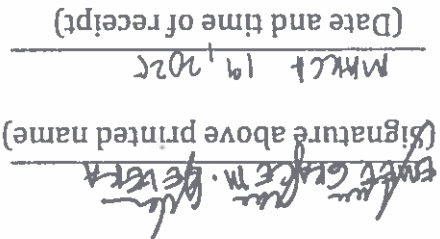 GRACE M.
(Signature above printed name)
MARCH 19, 2025
(Date and time of receipt)